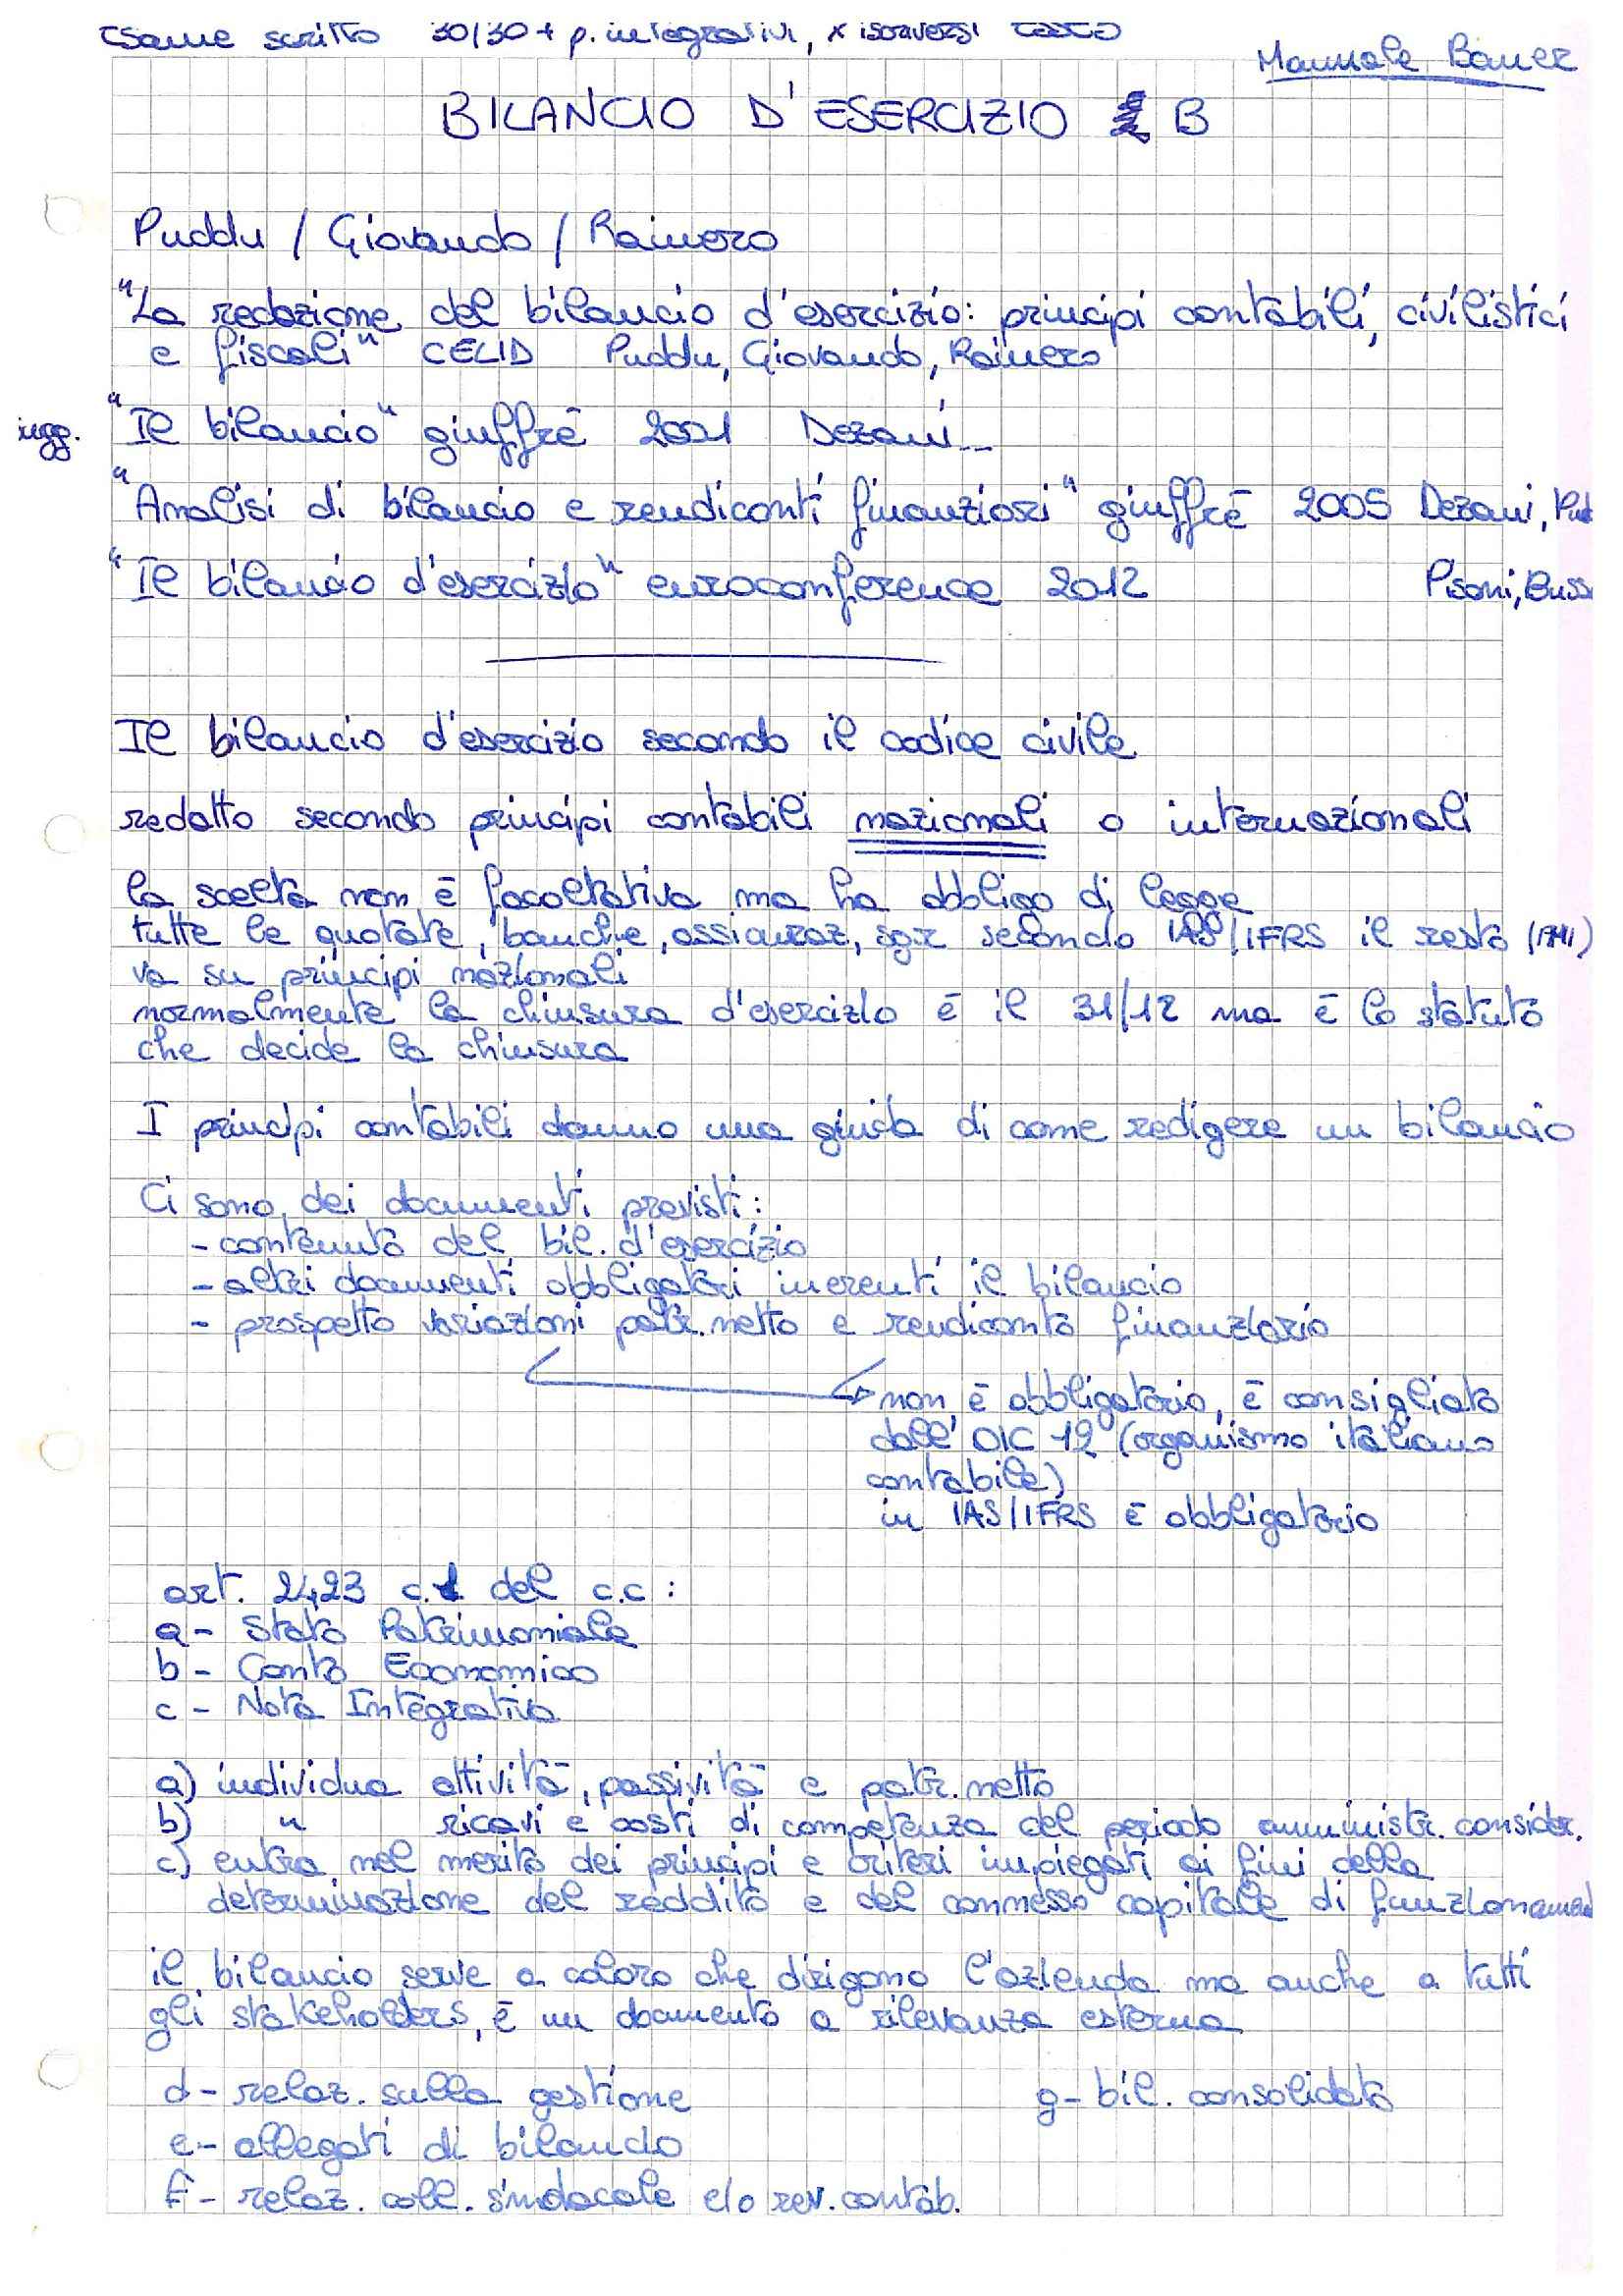 Esame scritto 30/30 + p. integrativi, x iscriversi
Manuale Bauer
BILANCIO D'ESERCIZIO B
Puddu / Giovando / Rainero
"La redazione del bilancio d'esercizio: principi contabili, civilistici
e fiscali" CELID Puddu, Giovando, Rainero
sugg. "Il bilancio" giuffrè 2001 Dezani
"Analisi di bilancio e rendiconti finanziari" giuffrè 2005 Dezani, Pud
"Il bilancio d'esercizio" euroconference 2012 Pisoni, Buss
Il bilancio d'esercizio secondo il codice civile
redatto secondo principi contabili nazionali o internazionali
la scelta non è facoltativa ma ha obbligo di legge
tutte le quotate, banche, assicuraz, sgr secondo IAS/IFRS il resto (PMI)
va su principi nazionali
normalmente la chiusura d'esercizio è il 31/12 ma è lo statuto
che decide la chiusura
I principi contabili danno una guida di come redigere un bilancio
Ci sono dei documenti previsti:
- contenuto del bil. d'esercizio
- altri documenti obbligatori inerenti il bilancio
- prospetto variazioni patr. netto e rendiconto finanziario
non è obbligatorio, è consigliato
dall' OIC 12 (organismo italiano
contabile)
in IAS/IFRS è obbligatorio
art. 2423 c.1 del c.c :
a - Stato Patrimoniale
b - Conto Economico
c - Nota Integrativa
a) individua attività, passività e patr. netto
b) " ricavi e costi di competenza del periodo amministr. consider.
c) entra nel merito dei principi e criteri impiegati ai fini della
determinazione del reddito e del connesso capitale di funzionament
il bilancio serve a coloro che dirigono l'azienda ma anche a tutti
gli stakeholders, è un documento a rilevanza esterna
d - relaz. sulla gestione g - bil. consolidato
e - allegati di bilancio
f - relaz. coll. sindacale e/o rev. contab.